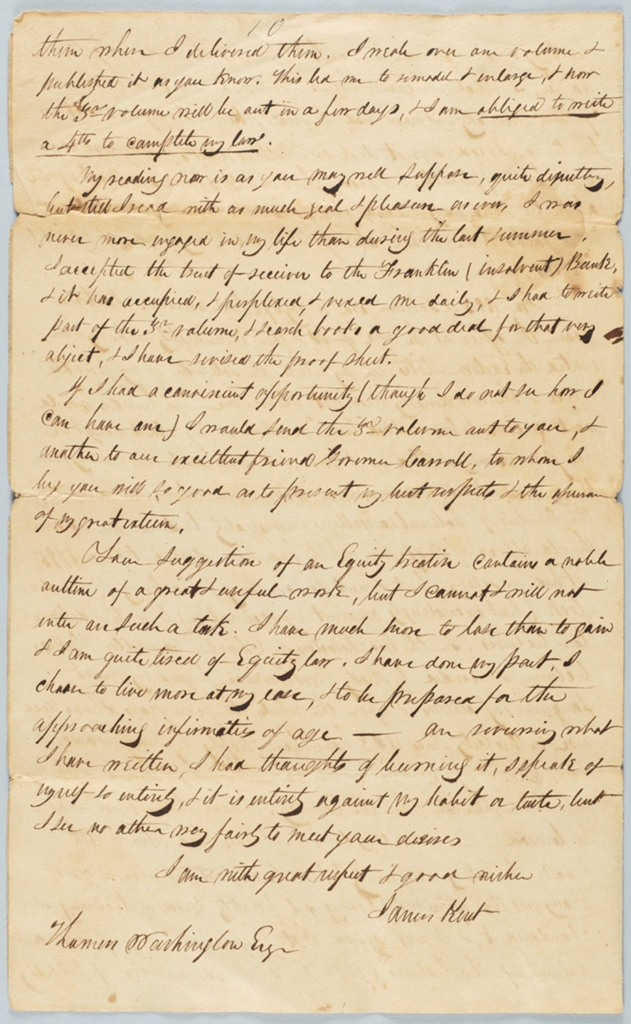 10
them when I delivered them. I wrote over one volume &
published it as you know. This led me to remodel & enlarge, & now
the 3rd volume will be out in a few days, & I am obliged to write
a 4th to complete my law.
My reading now is as you may well suppose, quite
but still I read with as much zeal & pleasure as ever. I was
never more engaged in my life than during the last summer.
I accepted the trust of receiver to the Franklin (insolvent) Bank,
& it has occupied, & perplexed, & vexed me daily, & I had to write
part of the 3rd volume, & search books a good deal for that very
object, & I have revised the proof sheet.
If I had a convenient opportunity (though I do not see how I
can have one) I would send the 3d volume out to you, &
another to our excellent friend Governor Carroll, to whom I
beg you will so good as to present my best respects & the assurance
of my great esteem.
Your suggestion of an Equity treatise contains a noble
outline of a great & useful work, but I cannot & will not
enter on such a task. I have much more to lose than to gain
& I am quite tired of Equity law. I have done my part, I
choose to live more at my ease, & to be prepared for the
approaching infirmities of age — on reviewing what
I have written, I had thoughts of burning it, I speak of
myself so entirely, & it is entirely against my habit or taste, but
I see no other way fairly to meet your desires
I am with great respect & good wishes
James Kent
Thomas Washington Esqr